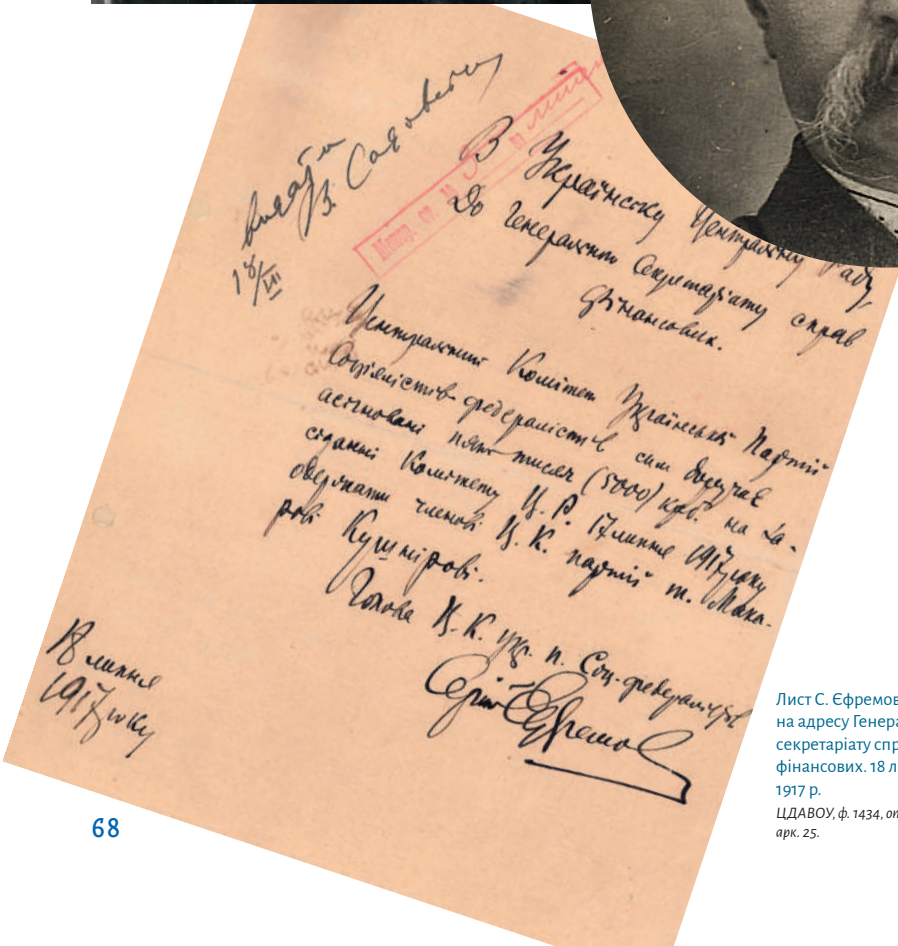 видати
В. Садовсь
18/VII
В Українську Центральну Раду,
До Генерального Секретаріату справ
Фінансових.
Центральний Комітет Української Партії
Соціялістів-федералістів сим доручає
асігновані пять тисяч (5000) крб. на за-
сіданні Комітету Ц. Р. 17 липня 1917 року
одержати членові Ц. К. партії т. Мака-
рові Кушнірові.
Голова Ц. К. укр. п. Соц.-федералістів
Сергій Єфремов
18 липня
1917 року
Лист С. Єфремов
на адресу Генера
секретаріату спр
фінансових. 18 л
1917 р.
ЦДАВОУ, ф. 1434, оп
арк. 25.
68